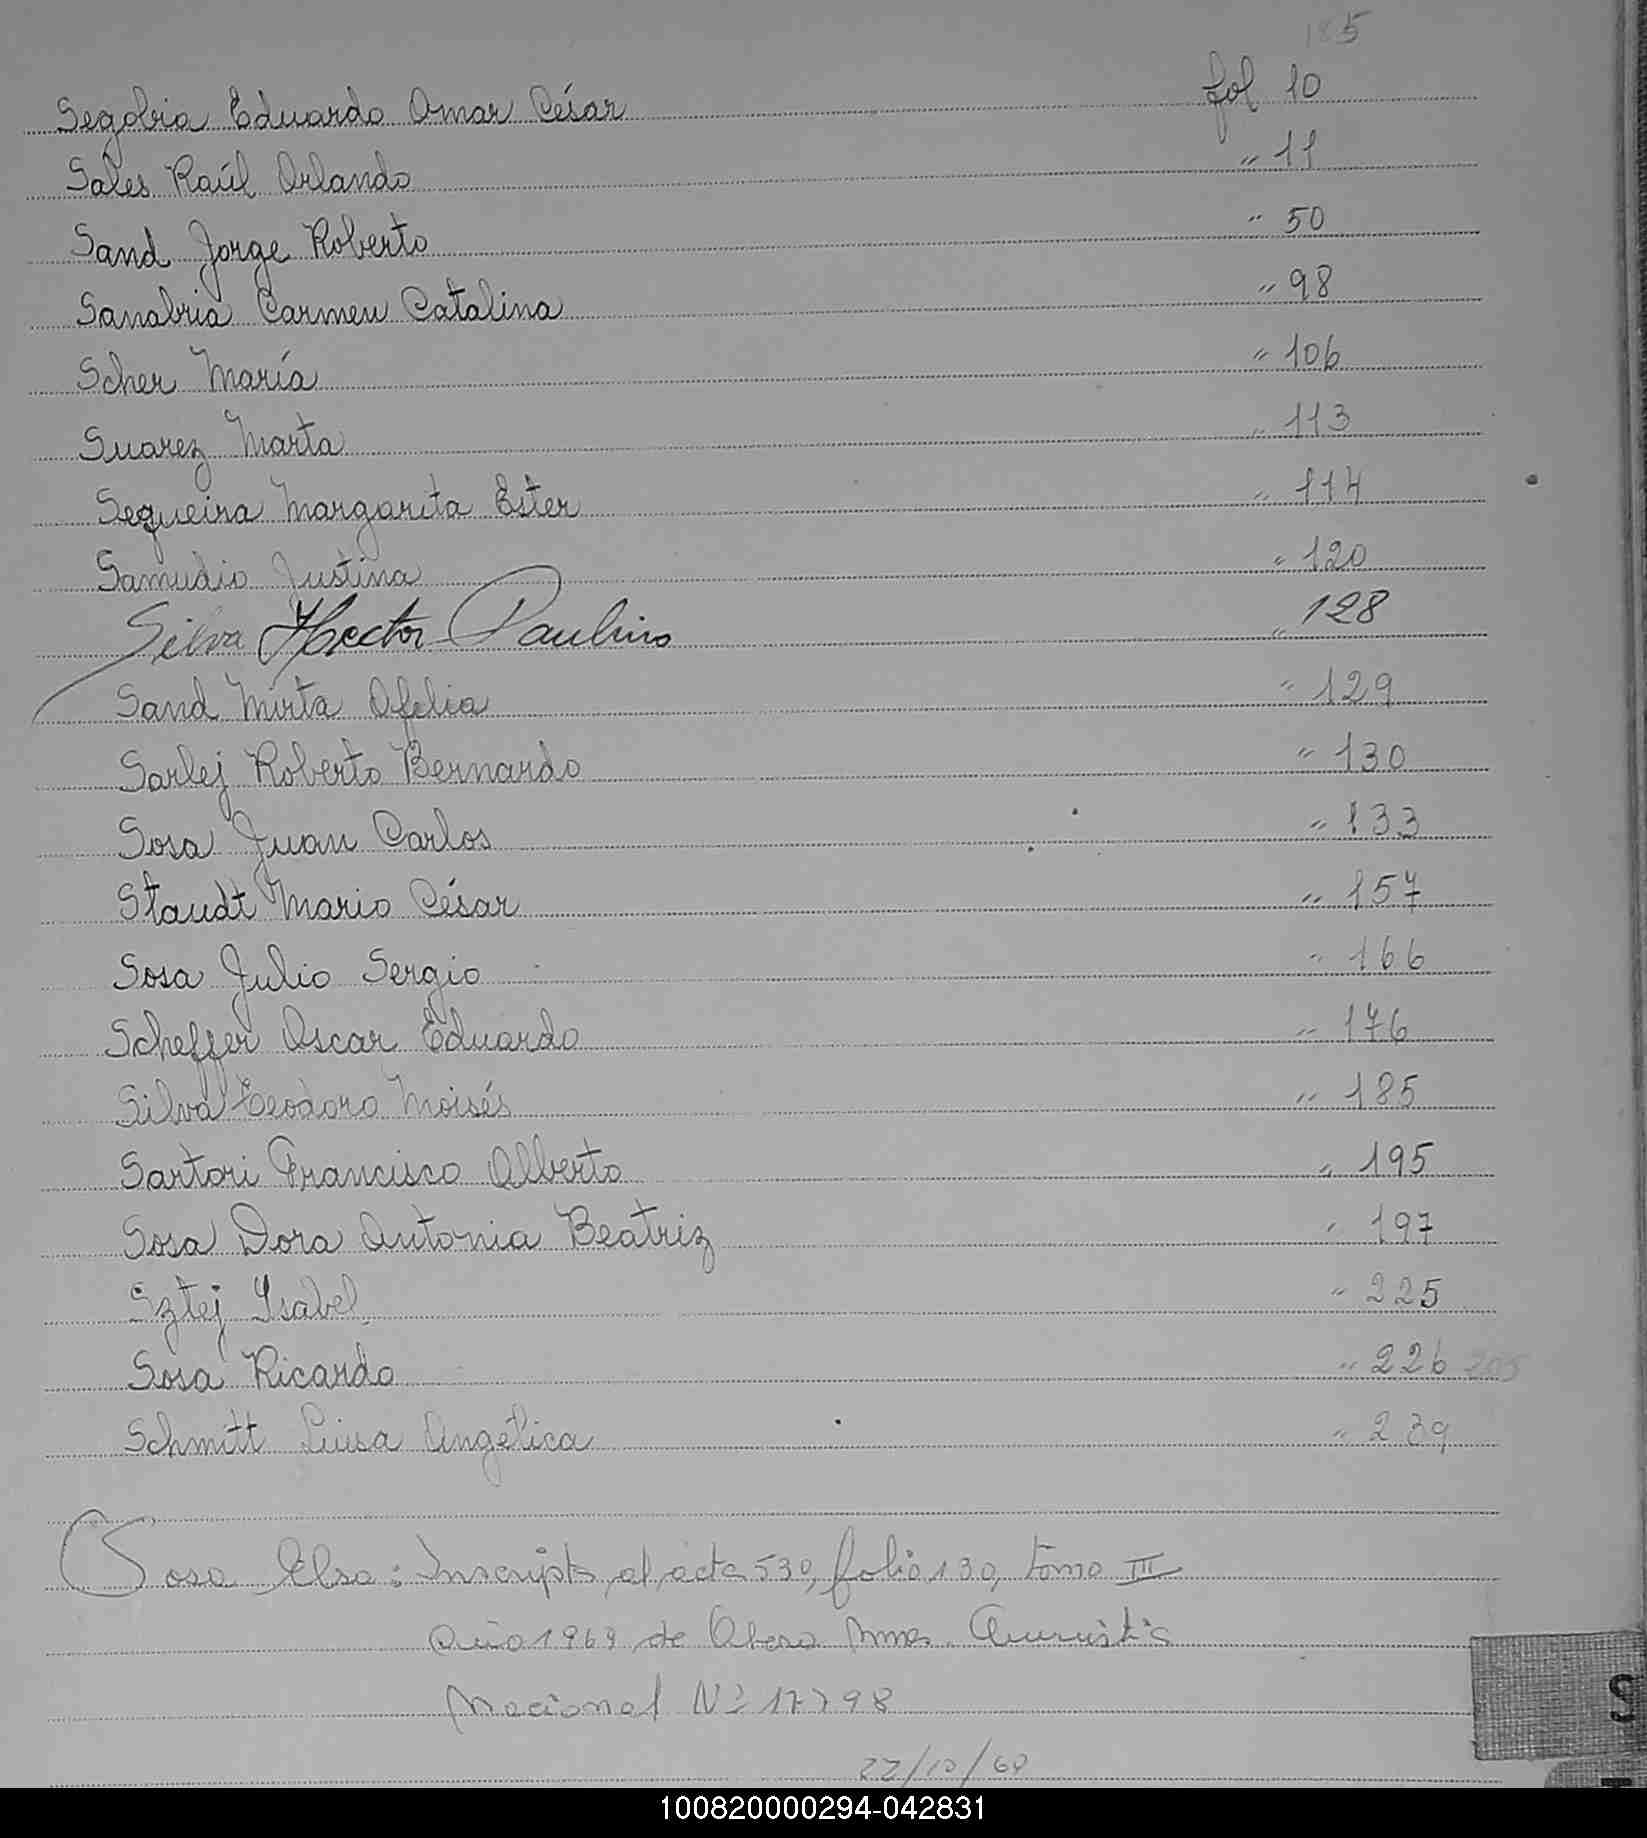 185
Segobia Eduardo Omar César fol 10
Sales Raúl Orlando " 11
Sand Jorge Roberto " 50
Sanabria Carmen Catalina " 98
Scher María " 106
Suarez Marta " 113
Sequeira Margarita Ester " 114
Samudio Justina " 120
Silva Hector Paulino " 128
Sand Mirta Ofelia " 129
Sarlej Roberto Bernardo " 130
Sosa Juan Carlos " 133
Staudt Mario César " 157
Sosa Julio Sergio " 166
Scheffer Oscar Eduardo " 176
Silva Teodoro Moisés " 185
Sartori Francisco Alberto " 195
Sosa Dora Antonia Beatriz " 197
Sztej Ysabel " 225
Sosa Ricardo " 226 205
Schmitt Luisa Angélica " 239
Sosa Elsa: Inscripta al acta 530, folio 130, tomo III
año 1969 de Obera Mnes. Amnistia
Nacional Nº 17798
22/10/69
S
100820000294-042831